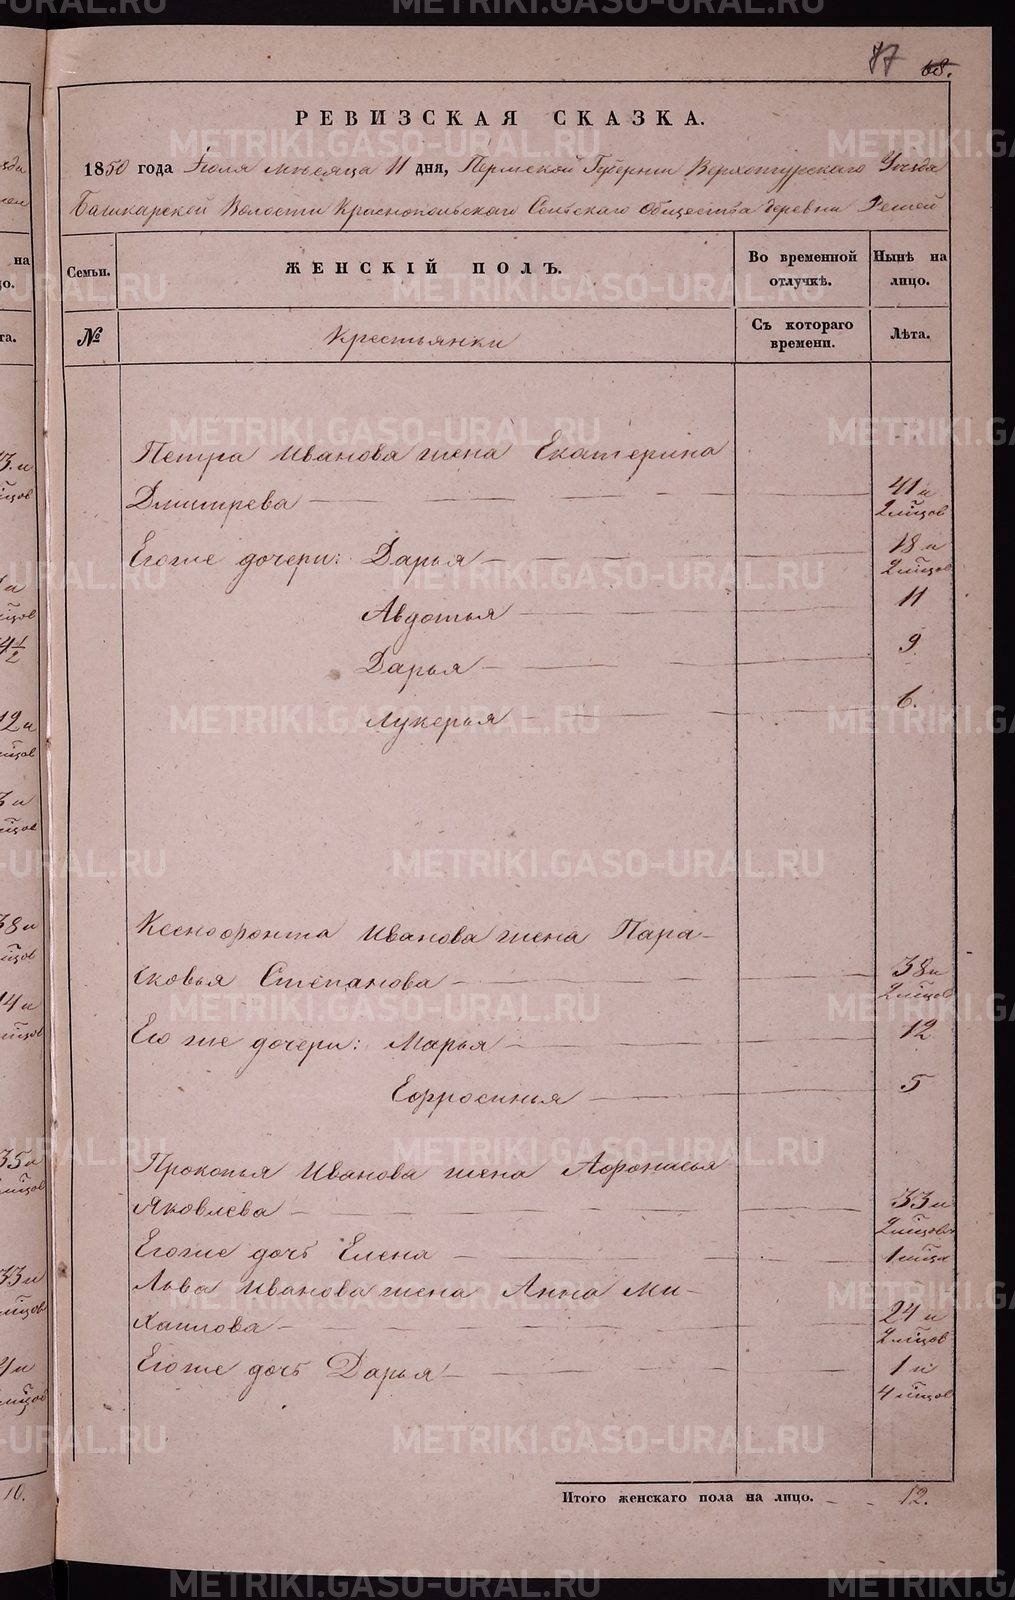 77 68.
РЕВИЗСКАЯ СКАЗКА.
1850 года Июля месяца 11 дня, Пермской Губернии Верхотурскаго Уезда
Башкарской Волости Краснопольскаго Сельскаго Общества деревни
Семьи. ЖЕНСКІЙ ПОЛЪ. Во временной отлучкѣ. Нынѣ на лицо.
№ Крестьянки Съ котораго времени. Лѣта.
Петра Иванова жена Екатерина
Дмитрева 41 и
2 мѣсцов
Егоже дочери: Дарья 18 и
2 мѣсцов
Авдотья 11
Дарья 9
Лукерья 6.
Ксенофонта Иванова жена Пара-
сковья Степанова 38 и
2 мѣсцов
Его же дочери: Марья 12
Ефросинья 5
Прокопья Иванова жена Афонасья
Яковлева 33 и
2 мѣсцов
Егоже дочь Елена 1 мѣсца
Льва Иванова жена Анна Ми-
хаилова 24 и
2 мѣсцов
Егоже дочь Дарья 1 и
4 мѣсцов
Итого женскаго пола на лицо. 12.
METRIKI.GASO-URAL.RU